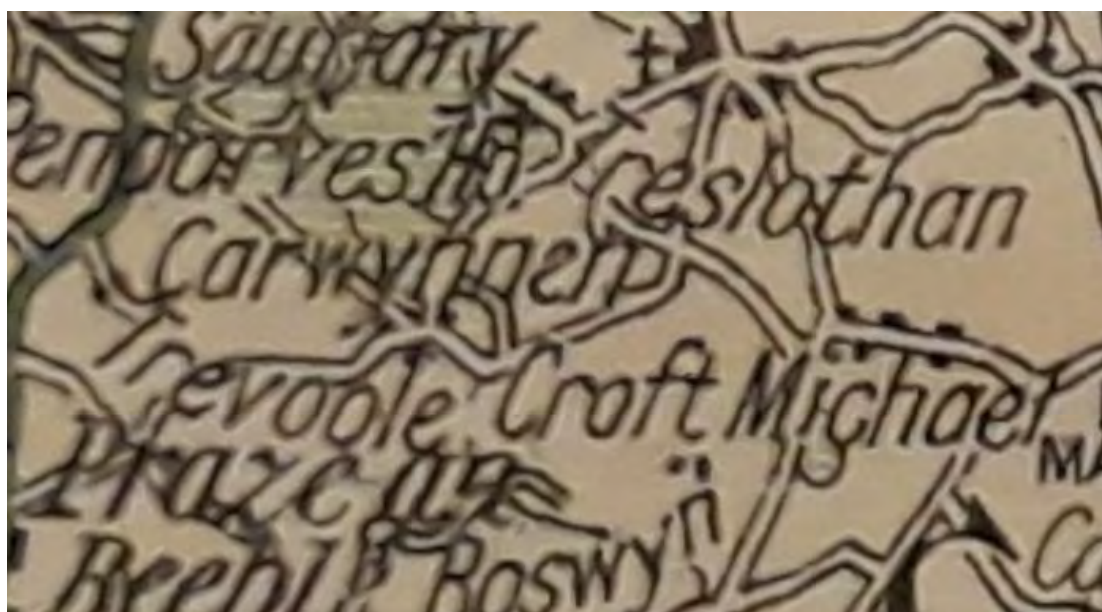 Penparves Ho.
reslothan
Carwynnen
revoole
Croft Michael
MA
Praze an
Beeble
Roswyn
Co